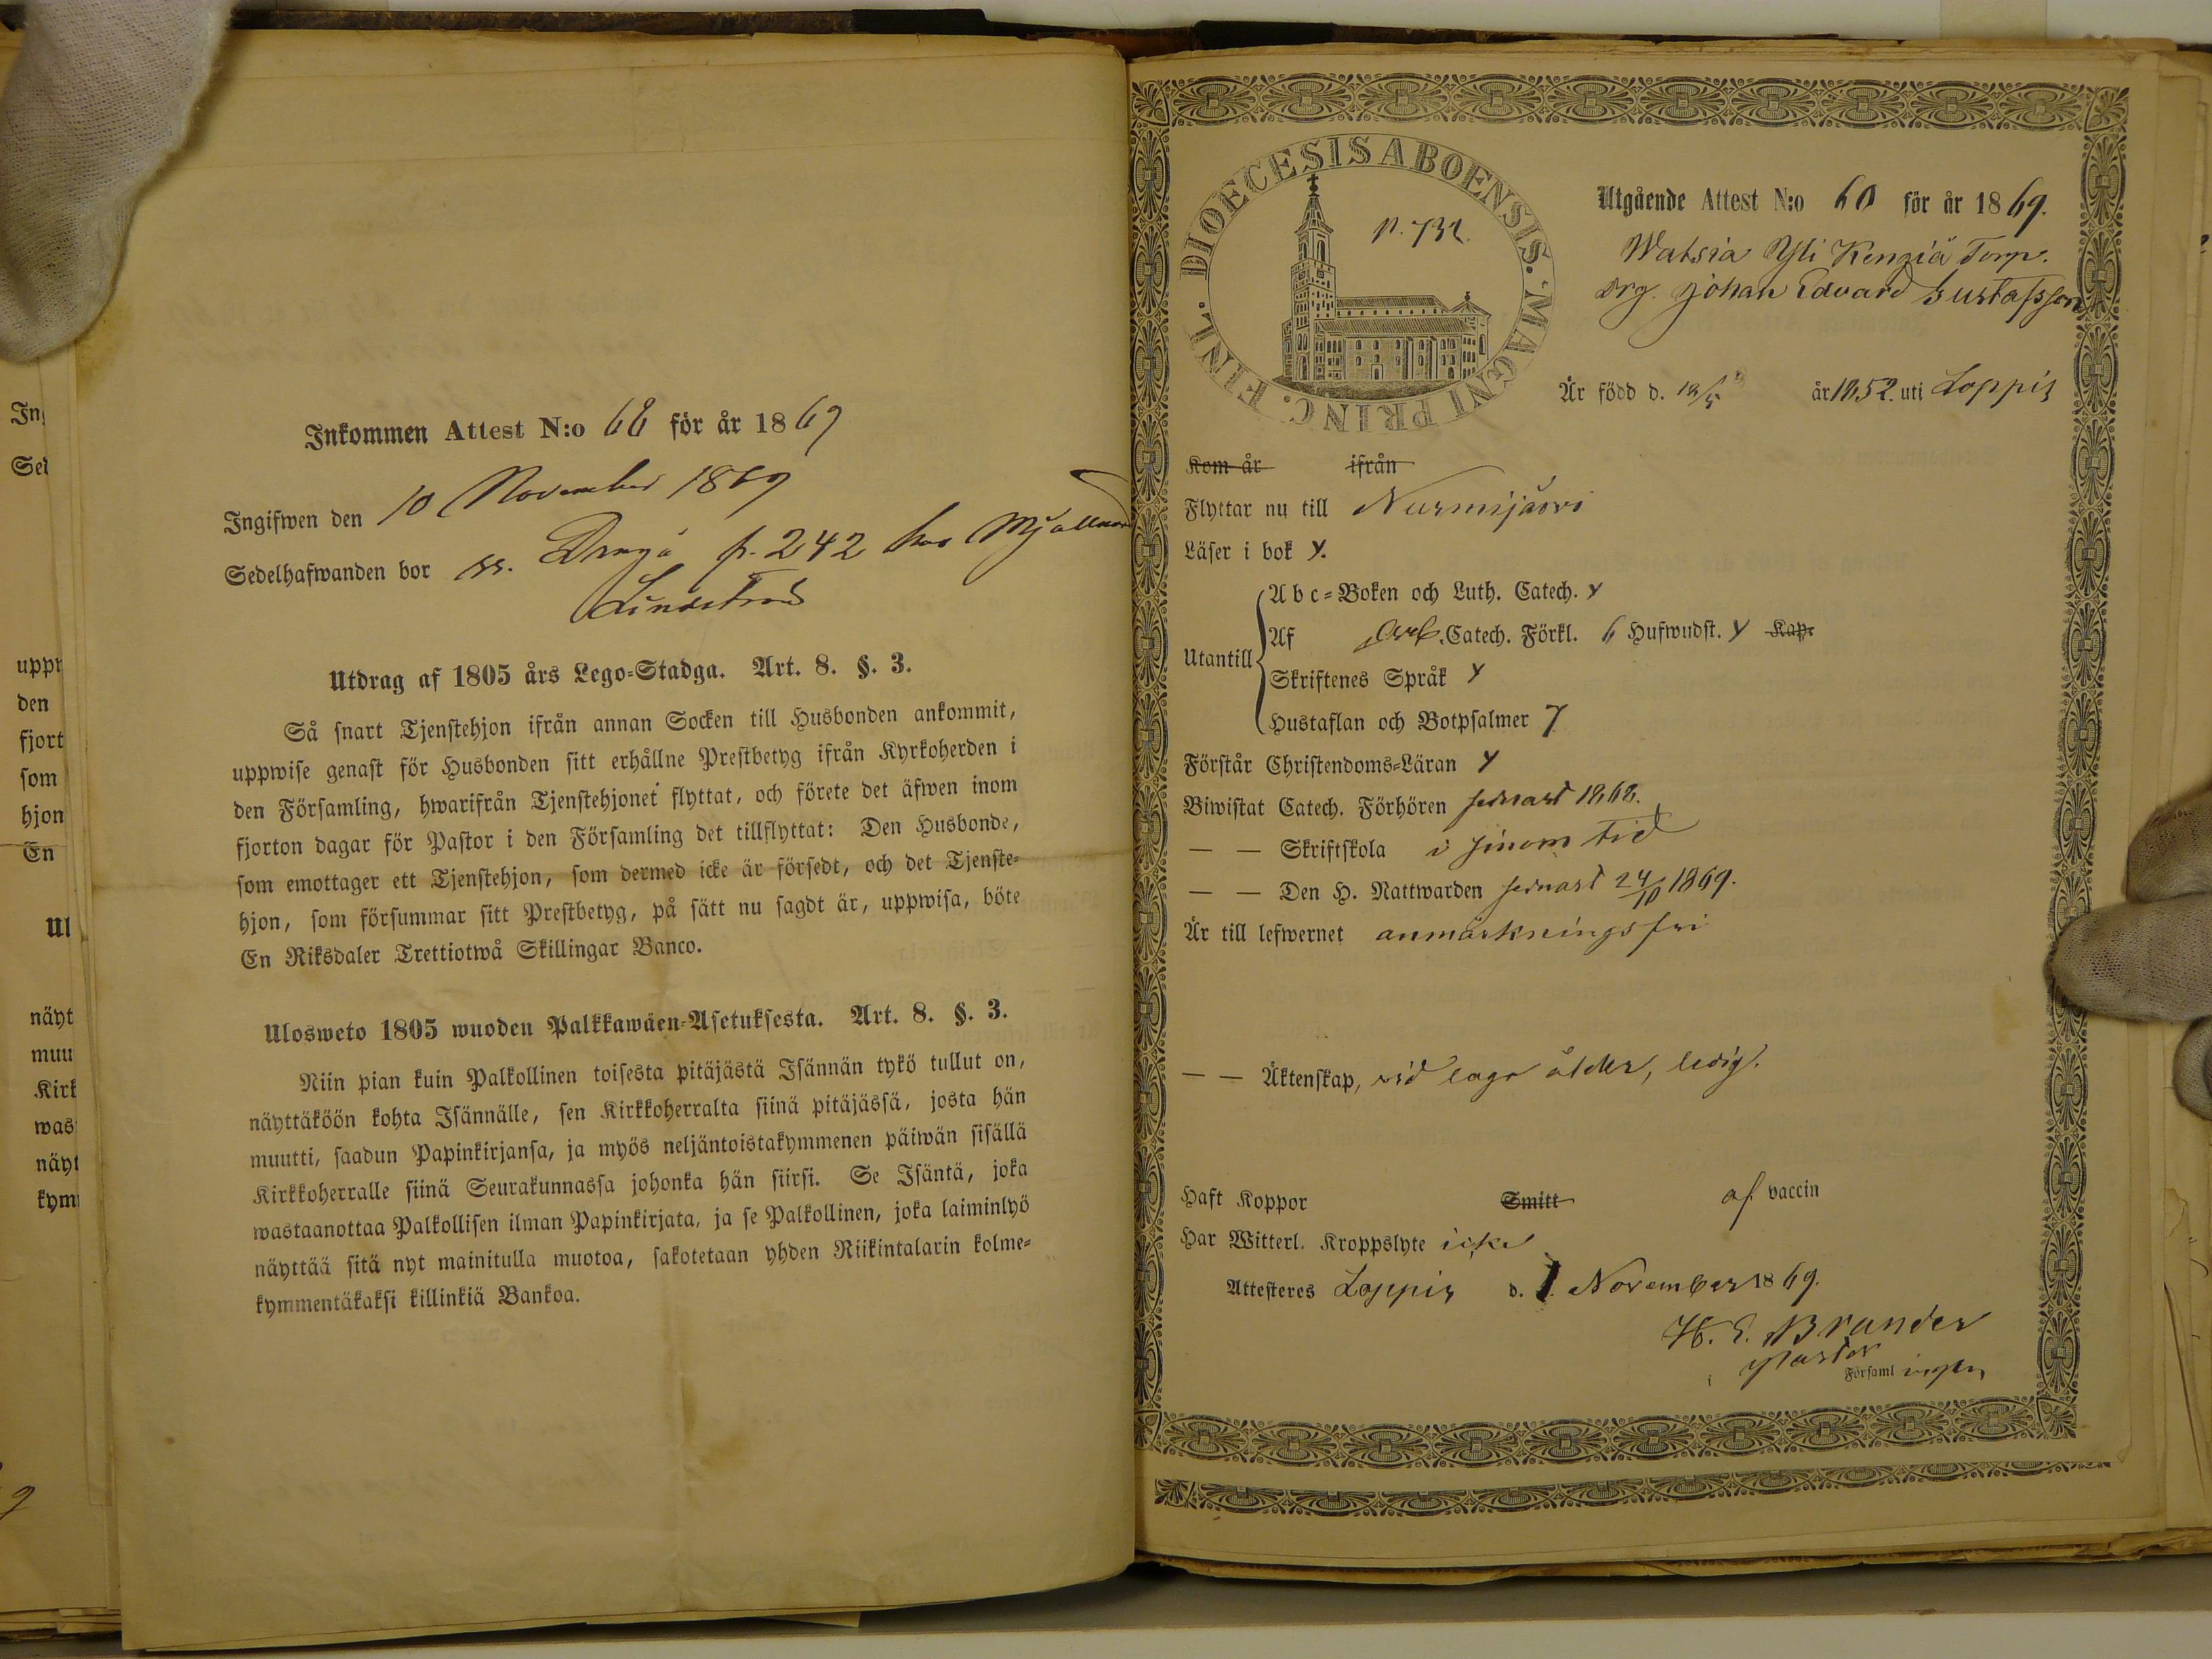 Inkommen Attest N:o 68 för år 1869
Ingifwen den 10 November 1869
Sedelhafwanden bor p. 242 hos
Utdrag af 1805 års Lego-Stadga. Art. 8. §. 3.
Så snart Tjenstehjon ifrån annan Socken till Husbonden ankommit,
uppwise genast för Husbonden sitt erhållne Prestbetyg ifrån Kyrkoherden i
den Församling, hwarifrån Tjenstehjonet flyttat, och förete det äfwen inom
fjorton dagar för Pastor i den Församling det tillflyttat: Den Husbonde,
som emottager ett Tjenstehjon, som dermed icke är försedt, och det Tjenste-
hjon, som försummar sitt Prestbetyg, på sätt nu sagdt är, uppwisa, böte
En Riksdaler Trettiotwå Skillingar Banco.
Ulosweto 1805 wuoden Palkkawäen-Asetuksesta. Art. 8. §. 3.
Niin pian kuin Palkollinen toisesta pitäjästä Isännän tykö tullut on,
näyttäköön kohta Isännälle, sen Kirkkoherralta siinä pitäjässä, josta hän
muutti, saadun Papinkirjansa, ja myös neljäntoistakymmenen päiwän sisällä
Kirkkoherralle siinä Seurakunnassa johonka hän siirsi. Se Isäntä, joka
wastaanottaa Palkollisen ilman Papinkirjata, ja se Palkollinen, joka laiminlyö
näyttää sitä nyt mainitulla muotoa, sakotetaan yhden Riikintalarin kolme-
kymmentäkaksi killinkiä Bankoa.
DIOECESIS ABOENSIS. MAGNI PRINC. FINL.
p. 732.
Utgående Attest N:o 60 för år 1869.
Watsia Yli Kengiä Torp.
drg. Johan Edvard Gustafsson
Är född d. år 1852. uti Loppis
Kom år ifrån
Flyttar nu till Nurmijärvi
Läser i bok y.
Abc-Boken och Luth. Catech. y
Utantill
Af Catech. Förkl. 6 Hufwudst. y Kap.
Skriftenes Språk y
Hustaflan och Botpsalmer 7
Förstår Christendoms-Läran y
Biwistat Catech. Förhören senast 1868.
— — Skriftskola i sinom tid
— — Den H. Nattwarden senast 24/10 1869.
Är till lefwernet anmärkningsfri
— — Äktenskap, vid laga ålder, ledig.
Haft Koppor Smitt af vaccin
Har Witterl. Kroppslyte icke
Attesteres Loppis d. 1 November 1869.
H. E. Brander
Pastor
i Församlingen